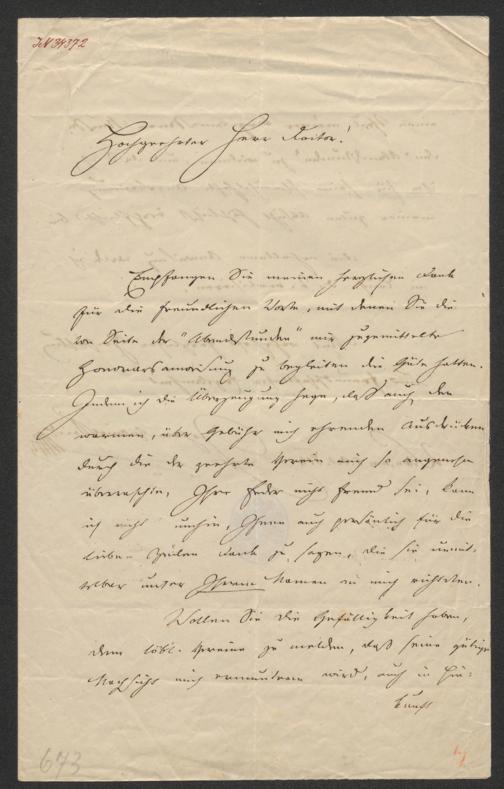 IN 38372
Hochgeehrter Herr Doctor!
Empfangen Sie meinen herzlichen Dank
für die freundlichen Worte, mit denen Sie die
von Seite der "Abendstunden" mir zugemittelte
Honorarsanweisung zu begleiten die Güte hatten.
Indem ich die Überzeugung hege, daß auch den
warmen, über Gebühr mich ehrenden Ausdrücken
durch die der geehrte Verein mich so angenehm
überraschte, Ihre Feder nicht fremd sei, kann
ich nicht umhin, Ihnen auch persönlich für die
lieben Zeilen Dank zu sagen, die sie unmit-
telbar unter Ihrem Namen an mich richteten.
Wollen Sie die Gefälligkeit haben,
dem löbl. Vereine zu melden, daß seine gütige
Nachsicht mich ermuntern wird, auch in Hin-
kunft
673